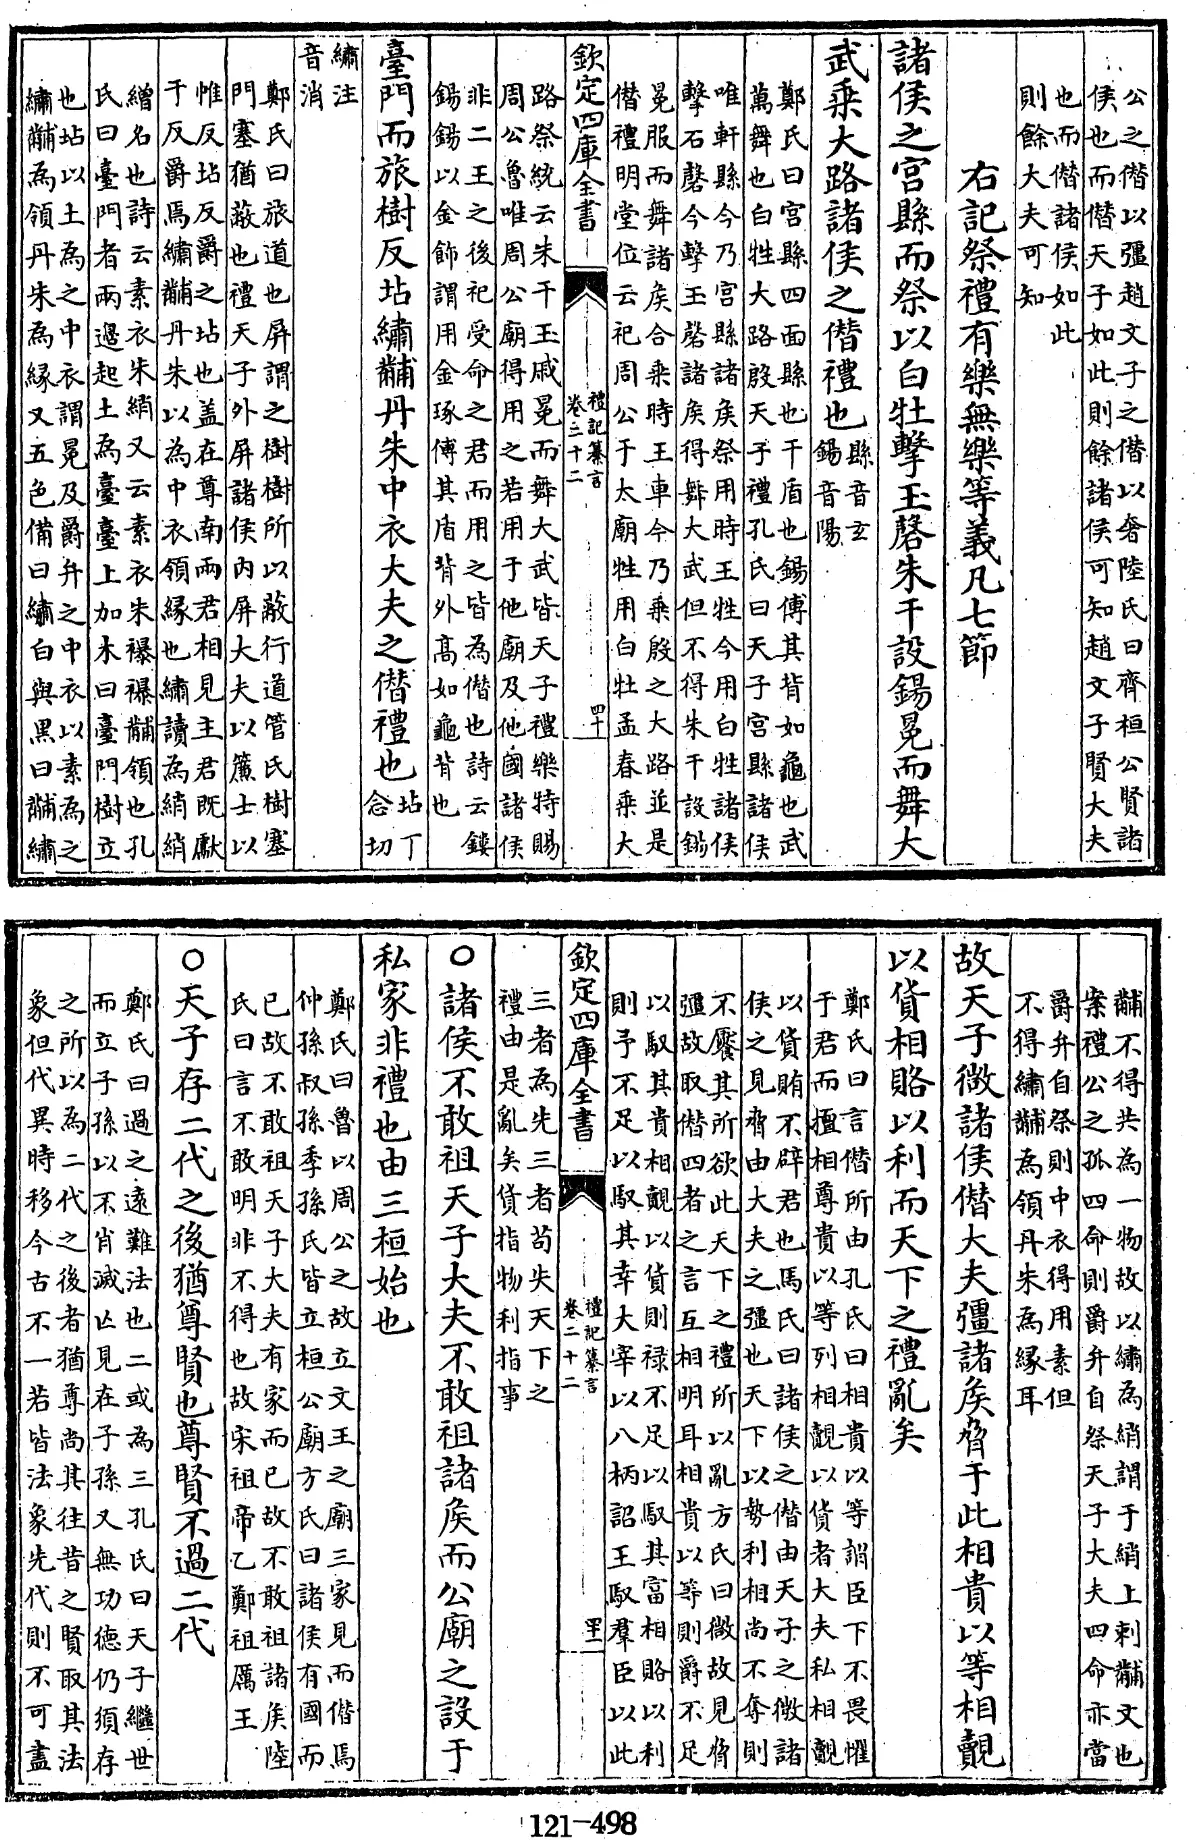 公之僭以彊趙文子之僭以奢陸氏曰齊桓公賢諸
侯也而僭天子如此則餘諸侯可知趙文子賢大夫
也而僭諸侯如此
則餘大夫可知
右記祭禮有樂無樂等義凡七節
諸侯之宫縣而祭以白牡擊玉磬朱干設錫冕而舞大
武乘大路諸侯之僭禮也
縣音玄
錫音陽
鄭氏曰宫縣四面縣也干盾也錫傅其背如龜也武
萬舞也白牲大路殷天子禮孔氏曰天子宫縣諸侯
唯軒縣今乃宫縣諸侯祭用時王牲今用白牲諸侯
擊石磬今擊玉磬諸侯得舞大武但不得朱干設錫
冕服而舞諸侯合乘時王車今乃乘殷之大路並是
僭禮明堂位云祀周公于太廟牲用白牡孟春乘大
欽定四庫全書
禮記纂言
卷二十二
四十
路祭統云朱干玉戚冕而舞大武皆天子禮樂特賜
周公魯唯周公廟得用之若用于他廟及他國諸侯
非二王之後祀受命之君而用之皆為僭也詩云鏤
錫錫以金飾謂用金琢傅其盾背外高如龜背也
臺門而旅樹反坫繡黼丹朱中衣大夫之僭禮也
坫丁
念切
繡注
音消
鄭氏曰旅道也屏謂之樹樹所以蔽行道管氏樹塞
門塞猶蔽也禮天子外屏諸侯内屏大夫以簾士以
帷反坫反爵之坫也盖在尊南兩君相見主君既獻
于反爵焉繡黼丹朱以為中衣領緣也繡讀為綃綃
繒名也詩云素衣朱綃又云素衣朱襮襮黼領也孔
氏曰臺門者兩邊起土為臺臺上加木曰臺門樹立
也坫以土為之中衣謂冕及爵弁之中衣以素為之
繡黼為領丹朱為緣又五色備曰繡白與黑曰黼繡
黼不得共為一物故以繡為綃謂于綃上刺黼文也
案禮公之孤四命則爵弁自祭天子大夫四命亦當
爵弁自祭則中衣得用素但
不得繡黼為領丹朱為緣耳
故天子微諸侯僭大夫彊諸侯脅于此相貴以等相覿
以貨相賂以利而天下之禮亂矣
鄭氏曰言僭所由孔氏曰相貴以等謂臣下不畏懼
于君而擅相尊貴以等列相覿以貨者大夫私相覿
以貨賄不辟君也馬氏曰諸侯之僭由天子之微諸
侯之見脅由大夫之彊也天下以勢利相尚不奪則
不饜其所欲此天下之禮所以亂方氏曰微故見脅
彊故取僭四者之言互相明耳相貴以等則爵不足
以馭其貴相覿以貨則禄不足以馭其富相賂以利
則予不足以馭其幸大宰以八柄詔王馭羣臣以此
欽定四庫全書
禮記纂言
卷二十二
四十一
三者為先三者苟失天下之
禮由是亂矣貨指物利指事
○諸侯不敢祖天子大夫不敢祖諸侯而公廟之設于
私家非禮也由三桓始也
鄭氏曰魯以周公之故立文王之廟三家見而僭焉
仲孫叔孫季孫氏皆立桓公廟方氏曰諸侯有國而
已故不敢祖天子大夫有家而已故不敢祖諸侯陸
氏曰言不敢明非不得也故宋祖帝乙鄭祖厲王
○天子存二代之後猶尊賢也尊賢不過二代
鄭氏曰過之遠難法也二或為三孔氏曰天子繼世
而立子孫以不肖滅亡見在子孫又無功德仍須存
之所以為二代之後者猶尊尚其往昔之賢取其法
象但代異時移今古不一若皆法象先代則不可盡
121-498